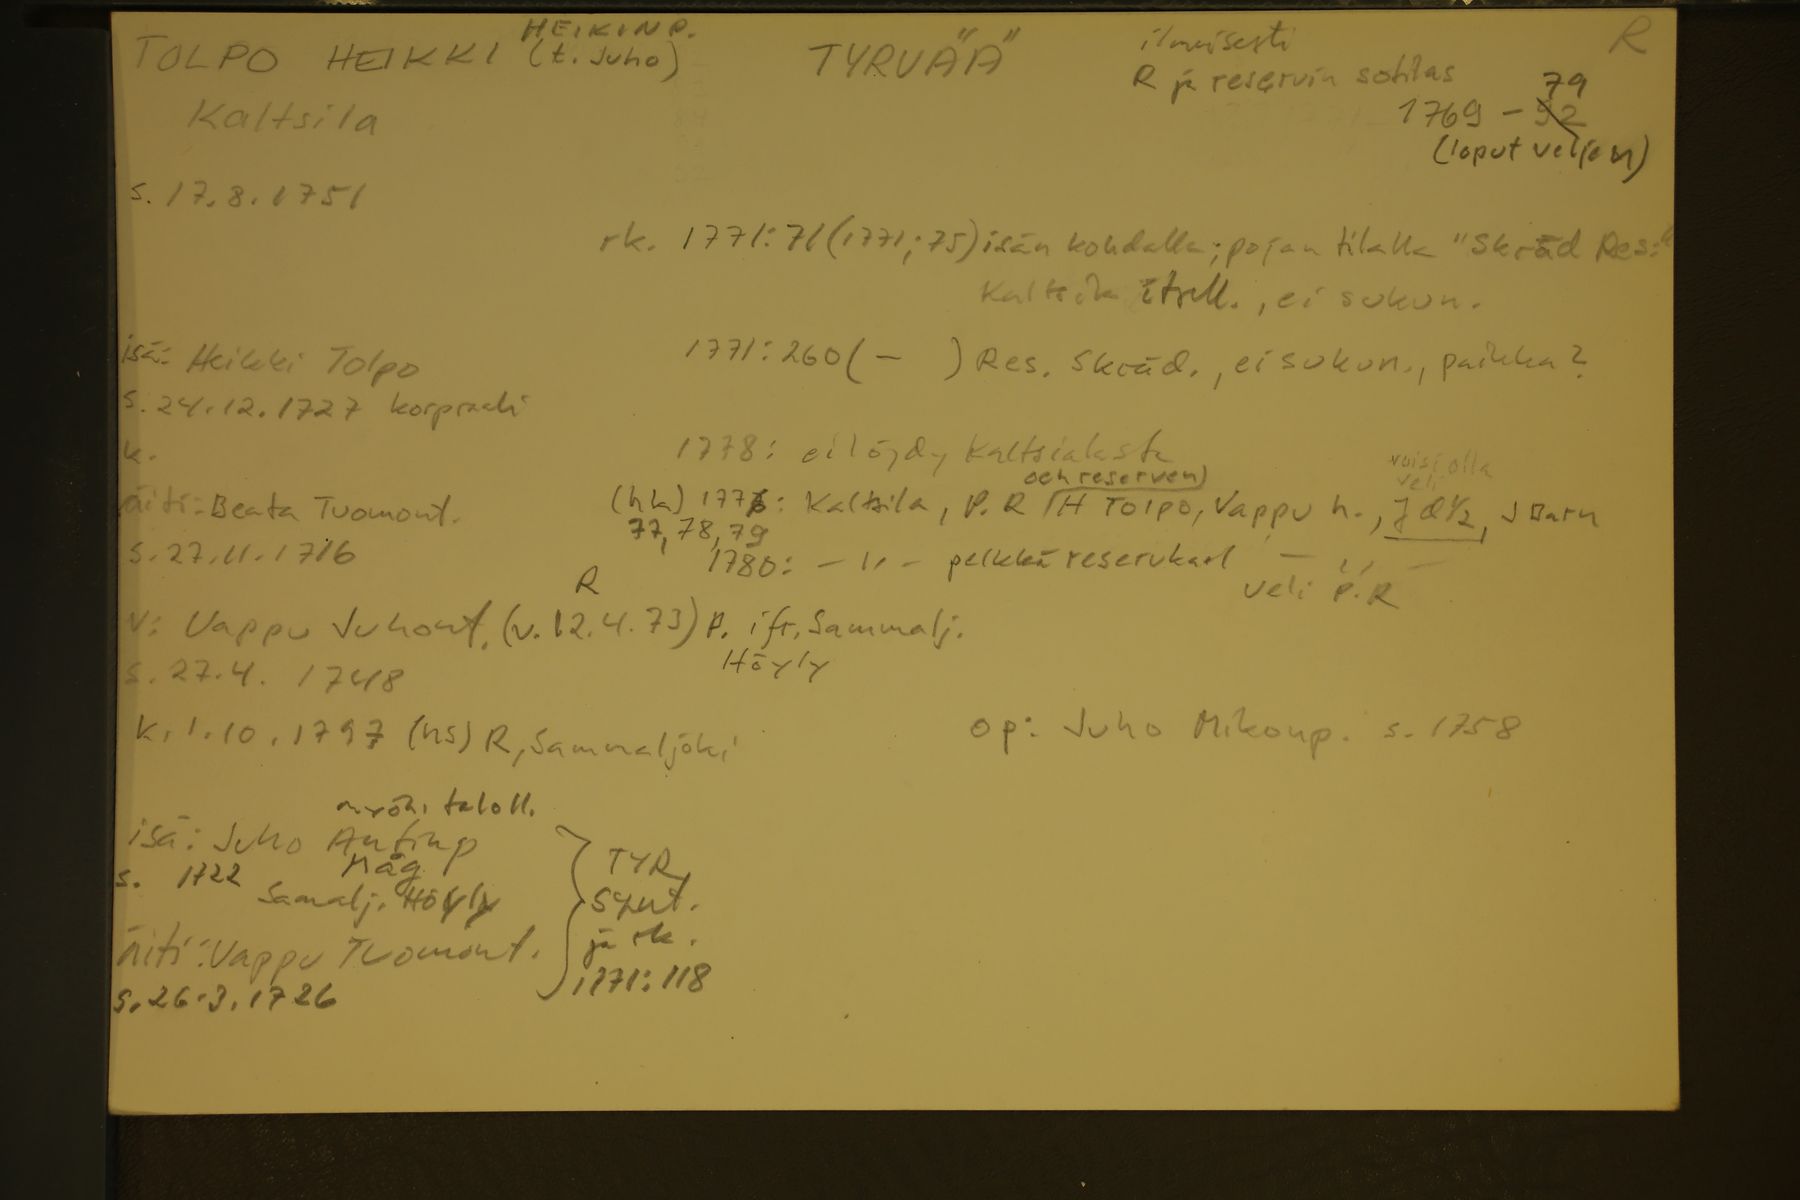 HEIKINP.
TOLPO HEIKKI (t. Juho)
TYRVÄÄ
ilmeisesti
R ja reservin sotilas
R
79
1769 - 92
(loput veljen)
Kaltsila
s. 17.8.1751
rk. 1771:71 (1771;75) isän kohdalla; pojan tilalla "Skräd Res:"
Kaltsila itsell., ei sukun.
isä: Heikki Tolpo
s. 24.12.1727 korpraali
k.
1771:260 ( - ) Res. Skräd., ei sukun., paikka?
1778: ei löydy Kaltsilasta
äiti: Beata Tuomont.
s. 27.11.1716
och reserven)
voisi olla
veli
(hk) 1776: Kaltsila, P.R (H Tolpo, Vappu h., J d 1/2, J Barn
77, 78, 79
1780: - " - pelkkä reservkarl - " -
veli P.R
R
v: Vappu Juhont. (v. 12.4.73) P. ifr. Sammalj.
Höyly
s. 27.4. 1748
k. 1.10.1797 (hs) R, Sammaljoki
op: Juho Mikonp. s. 1758
myöh. taloll.
isä: Juho Antinp
Måg
s. 1722
Samalj. Höyly
äiti: Vappu Tuomont.
s. 26.3.1726
TYR
synt.
ja rk.
1771:118